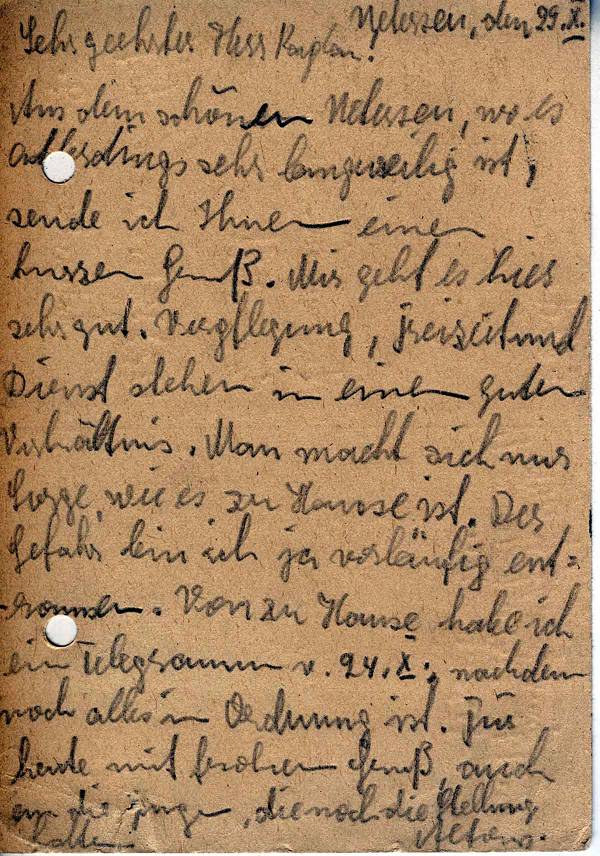 Uetersen, den 29.X.
Sehr geehrter Herr Kaplan.
Aus dem schönen Uetersen, wo es
allerdings sehr langweilig ist,
sende ich Ihnen einen
kurzen Gruß. Mir geht es hier
sehr gut. Verpflegung, Freizeit und
Dienst stehen in einem guten
Verhältnis. Man macht sich nur
Sorge, wie es zu Hause ist. Der
Gefahr bin ich ja vorläufig ent-
ronnen. Von zu Hause habe ich
ein Telegramm v. 24.X., nachdem
noch alles in Ordnung ist. Für
heute mit frohem Gruß, auch
an die Jungen, die noch die Stellung
halten!